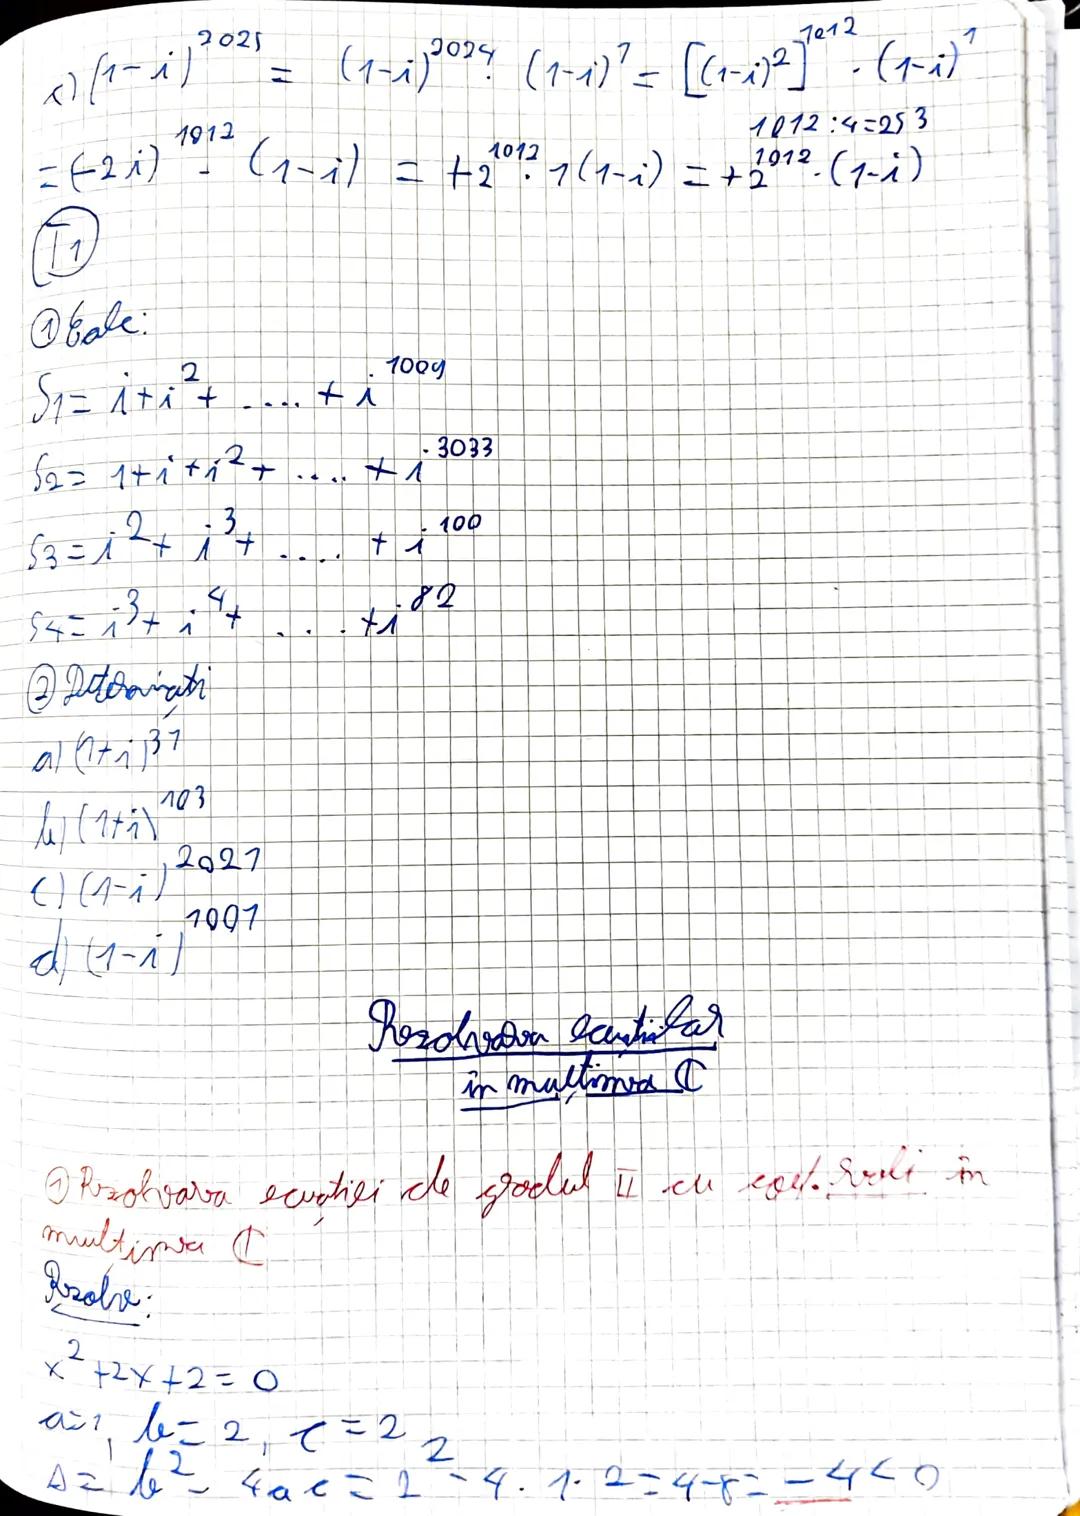 c) (1-i)^2025 = (1-i)^2024 · (1-i)^1 = [(1-i)^2]^1012 · (1-i)^1
1012:4=253
=(-2i)^1012 · (1-i) = +2^1012 · 1(1-i) = +2^1012 · (1-i)
T1
① Calc:
S1= i+i^2+ ..... + i^1009
S2= 1+i+i^2+ .... + i^3033
S3= i^2+ i^3+ ..... + i^100
S4= i^3+ i^4+ .... +i^82
② Determinați
a) (1+i)^31
b) (1+i)^103
c) (1-i)^2021
d) (1-i)^1001
Rezolvarea ecuațiilor
în mulțimea ℂ
① Rezolvarea ecuației de gradul II cu coef. reali în
mulțimea ℂ
Rezolv:
x^2+2x+2=0
a=1, b=2, c=2
Δ= b^2- 4ac = 2^2-4·1·2=4-8= -4<0